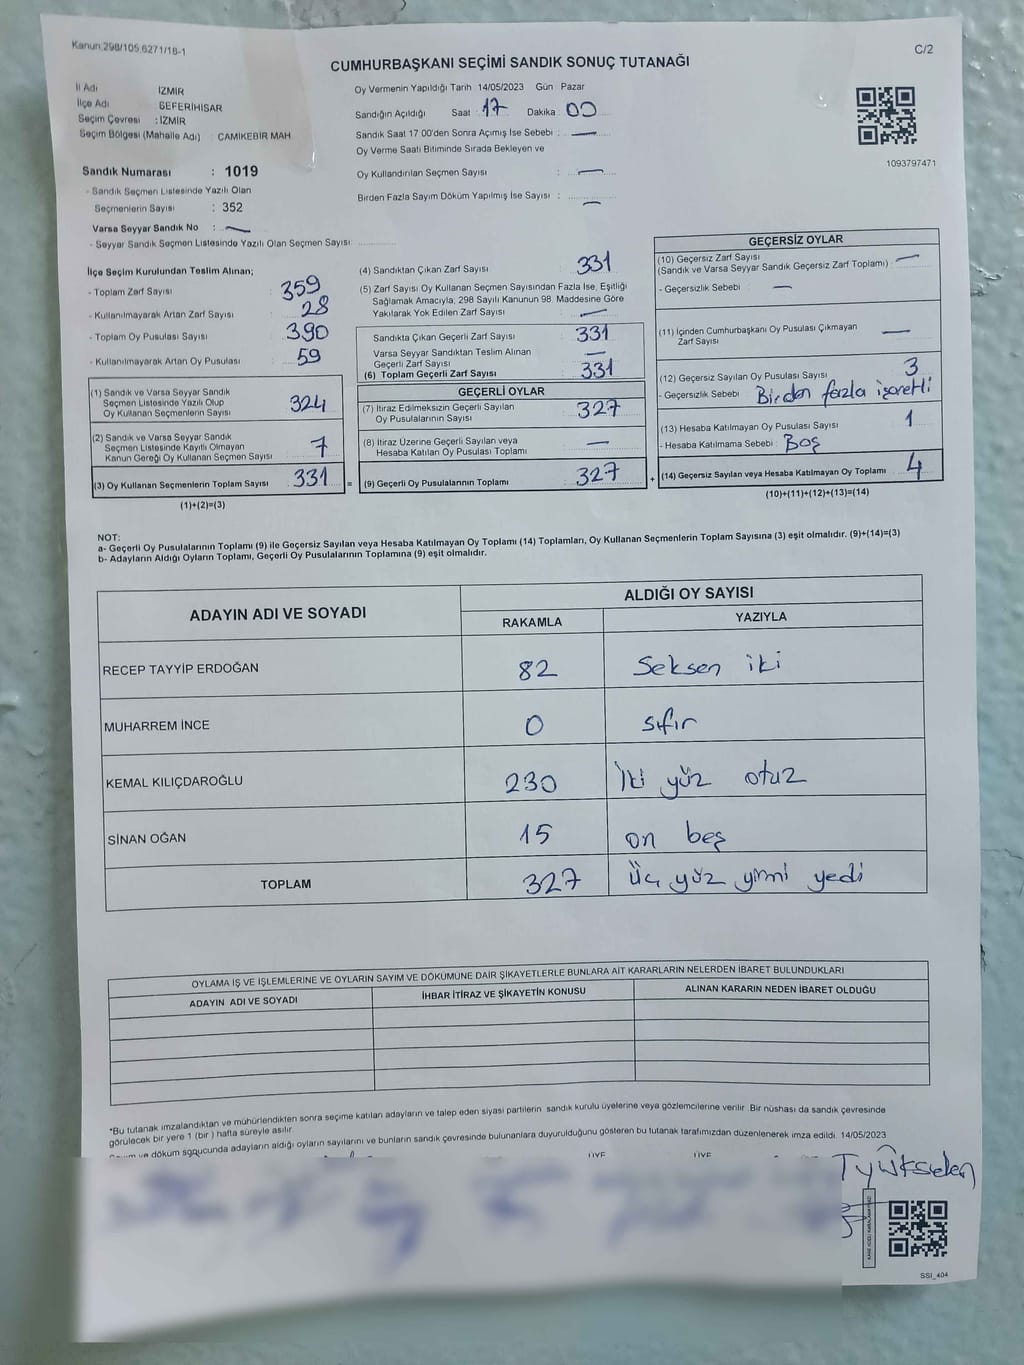 Kanun:298/105,6271/18-1
C/2
CUMHURBAŞKANI SEÇİMİ SANDIK SONUÇ TUTANAĞI
İl Adı İZMİR
İlçe Adı SEFERİHİSAR
Seçim Çevresi : İZMİR
Seçim Bölgesi (Mahalle Adı) : CAMİKEBİR MAH.
Sandık Numarası : 1019
- Sandık Seçmen Listesinde Yazılı Olan
Seçmenlerin Sayısı : 352
Varsa Seyyar Sandık No : —
- Seyyar Sandık Seçmen Listesinde Yazılı Olan Seçmen Sayısı
Oy Vermenin Yapıldığı Tarih 14/05/2023 Gün Pazar
Sandığın Açıldığı Saat 17 Dakika 00
Sandık Saat 17 00'den Sonra Açımış İse Sebebi : —
Oy Verme Saati Bitiminde Sırada Bekleyen ve
Oy Kullandırılan Seçmen Sayısı : —
Birden Fazla Sayım Döküm Yapılmış İse Sayısı : —
1093797471
İlçe Seçim Kurulundan Teslim Alınan;
- Toplam Zarf Sayısı 359
- Kullanılmayarak Artan Zarf Sayısı 28
- Toplam Oy Pusulası Sayısı 390
- Kullanılmayarak Artan Oy Pusulası 59
(1) Sandık ve Varsa Seyyar Sandık
Seçmen Listesinde Yazılı Olup
Oy Kullanan Seçmenlerin Sayısı 324
(2) Sandık ve Varsa Seyyar Sandık
Seçmen Listesinde Kayıtlı Olmayan
Kanun Gereği Oy Kullanan Seçmen Sayısı 7
(3) Oy Kullanan Seçmenlerin Toplam Sayısı 331
(1)+(2)=(3)
=
(4) Sandıktan Çıkan Zarf Sayısı 331
(5) Zarf Sayısı Oy Kullanan Seçmen Sayısından Fazla İse, Eşitliği
Sağlamak Amacıyla, 298 Sayılı Kanunun 98. Maddesine Göre
Yakılarak Yok Edilen Zarf Sayısı —
Sandıkta Çıkan Geçerli Zarf Sayısı 331
Varsa Seyyar Sandıktan Teslim Alınan
Geçerli Zarf Sayısı —
(6) Toplam Geçerli Zarf Sayısı 331
GEÇERLİ OYLAR
(7) İtiraz Edilmeksizin Geçerli Sayılan
Oy Pusulalarının Sayısı 327
(8) İtiraz Üzerine Geçerli Sayılan veya
Hesaba Katılan Oy Pusulası Toplamı —
(9) Geçerli Oy Pusulalarının Toplamı 327
+
GEÇERSİZ OYLAR
(10) Geçersiz Zarf Sayısı
(Sandık ve Varsa Seyyar Sandık Geçersiz Zarf Toplamı) : —
- Geçersizlik Sebebi : —
(11) İçinden Cumhurbaşkanı Oy Pusulası Çıkmayan
Zarf Sayısı —
(12) Geçersiz Sayılan Oy Pusulası Sayısı 3
- Geçersizlik Sebebi Birden fazla işaretli
(13) Hesaba Katılmayan Oy Pusulası Sayısı 1
- Hesaba Katılmama Sebebi : Boş
(14) Geçersiz Sayılan veya Hesaba Katılmayan Oy Toplamı 4
(10)+(11)+(12)+(13)=(14)
NOT:
a- Geçerli Oy Pusulalarının Toplamı (9) ile Geçersiz Sayılan veya Hesaba Katılmayan Oy Toplamı (14) Toplamları, Oy Kullanan Seçmenlerin Toplam Sayısına (3) eşit olmalıdır. (9)+(14)=(3)
b- Adayların Aldığı Oyların Toplamı, Geçerli Oy Pusulalarının Toplamına (9) eşit olmalıdır.
ADAYIN ADI VE SOYADI ALDIĞI OY SAYISI
RAKAMLA YAZIYLA
RECEP TAYYİP ERDOĞAN 82 Seksen iki
MUHARREM İNCE 0 sıfır
KEMAL KILIÇDAROĞLU 230 İki yüz otuz
SİNAN OĞAN 15 on beş
TOPLAM 327 Üç yüz yirmi yedi
OYLAMA İŞ VE İŞLEMLERİNE VE OYLARIN SAYIM VE DÖKÜMÜNE DAİR ŞİKAYETLERLE BUNLARA AİT KARARLARIN NELERDEN İBARET BULUNDUKLARI
ADAYIN ADI VE SOYADI İHBAR İTİRAZ VE ŞİKAYETİN KONUSU ALINAN KARARIN NEDEN İBARET OLDUĞU
*Bu tutanak imzalandıktan ve mühürlendikten sonra seçime katılan adayların ve talep eden siyasi partilerin sandık kurulu üyelerine veya gözlemcilerine verilir .Bir nüshası da sandık çevresinde
görülecek bir yere 1 (bir ) hafta süreyle asılır.
ve döküm sonucunda adayların aldığı oyların sayılarını ve bunların sandık çevresinde bulunanlara duyurulduğunu gösteren bu tutanak tarafımızdan düzenlenerek imza edildi. 14/05/2023
ÜYE ÜYE
T Yükselen
SSİ_404